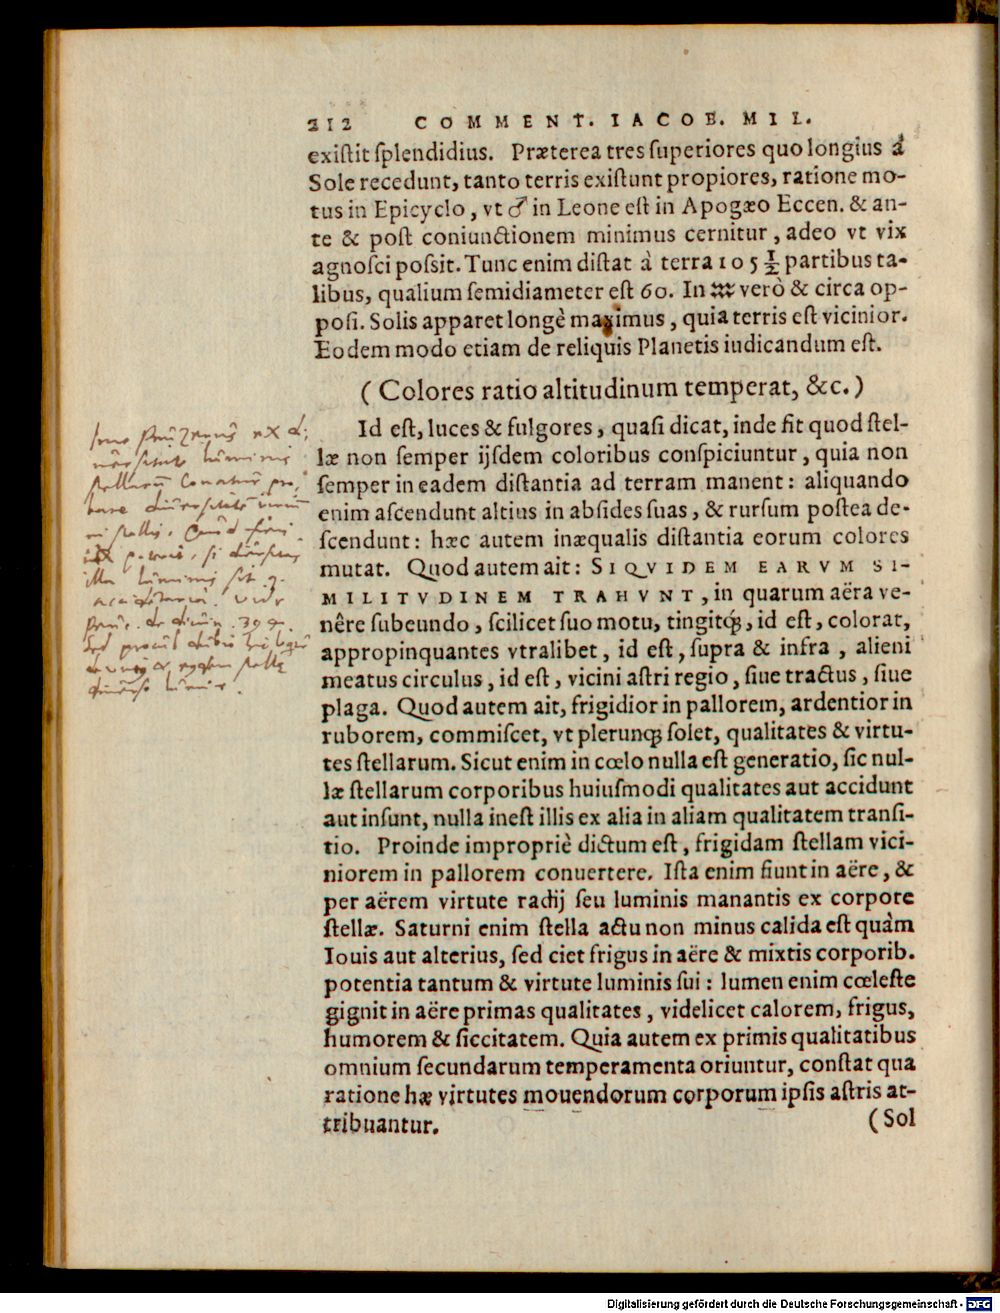 212 COMMENT. IACOB. MIL.
existit splendidius. Præterea tres superiores quo longius á
Sole recedunt, tanto terris existunt propiores, ratione mo-
tus in Epicyclo, vt ♂ in Leone est in Apogæo Eccen. & an-
te & post coniunctionem minimus cernitur, adeo vt vix
agnosci possit. Tunc enim distat à terra 105 ½ partibus ta-
libus, qualium semidiameter est 60. In ♒ verò & circa op-
posi. Solis apparet longè maximus, quia terris est vicinior.
Eodem modo etiam de reliquis Planetis iudicandum est.
(Colores ratio altitudinum temperat, &c.)
Id est, luces & fulgores, quasi dicat, inde fit quod stel-
læ non semper ijsdem coloribus conspiciuntur, quia non
semper in eadem distantia ad terram manent: aliquando
enim ascendunt altius in absides suas, & rursum postea de-
scendunt: hæc autem inæqualis distantia eorum colores
mutat. Quod autem ait: SIQVIDEM EARVM SI-
MILITVDINEM TRAHVNT, in quarum aëra ve-
nêre subeundo, scilicet suo motu, tingitq́;, id est, colorat,
appropinquantes vtralibet, id est, supra & infra, alieni
meatus circulus, id est, vicini astri regio, siue tractus, siue
plaga. Quod autem ait, frigidior in pallorem, ardentior in
ruborem, commiscet, vt plerunq; solet, qualitates & virtu-
tes stellarum. Sicut enim in cœlo nulla est generatio, sic nul-
læ stellarum corporibus huiusmodi qualitates aut accidunt
aut insunt, nulla inest illis ex alia in aliam qualitatem transi-
tio. Proinde impropriè dictum est, frigidam stellam vici-
niorem in pallorem conuertere. Ista enim fiunt in aëre, &
per aërem virtute radij seu luminis manantis ex corpore
stellæ. Saturni enim stella actu non minus calida est quàm
Iouis aut alterius, sed ciet frigus in aëre & mixtis corporib.
potentia tantum & virtute luminis sui: lumen enim cœleste
gignit in aëre primas qualitates, videlicet calorem, frigus,
humorem & siccitatem. Quia autem ex primis qualitatibus
omnium secundarum temperamenta oriuntur, constat qua
ratione hæ virtutes mouendorum corporum ipsis astris at-
tribuantur.
(Sol
Digitalisierung gefördert durch die Deutsche Forschungsgemeinschaft - DFG